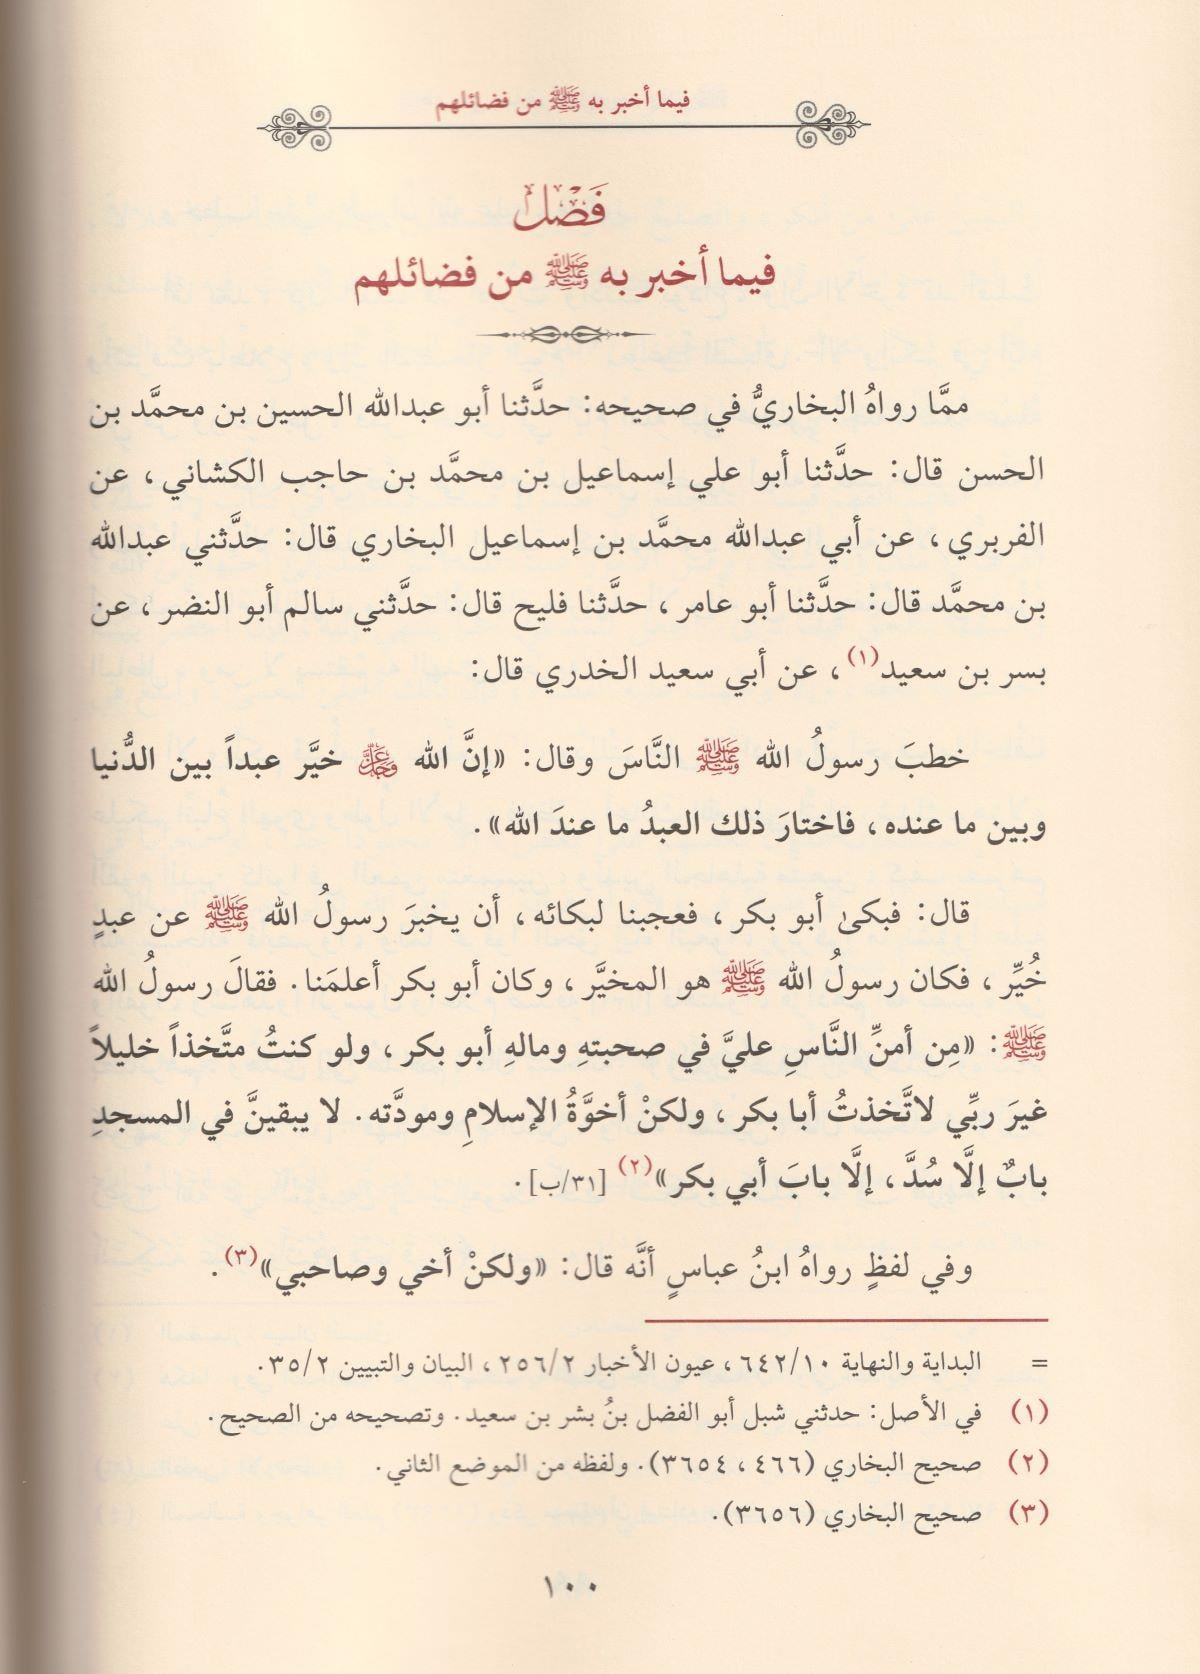 فيما أخبر به ﷺ من فضائلهم
فَصْل
فيما أخبر به ﷺ من فضائلهم
ممَّا رواهُ البخاريُّ في صحيحه: حدَّثنا أبو عبدالله الحسين بن محمَّد بن
الحسن قال: حدَّثنا أبو علي إسماعيل بن محمَّد بن حاجب الكشاني، عن
الفربري، عن أبي عبدالله محمَّد بن إسماعيل البخاري قال: حدَّثني عبدالله
بن محمَّد قال: حدَّثنا أبو عامر، حدَّثنا فليح قال: حدَّثني سالم أبو النضر، عن
بسر بن سعيد(١)، عن أبي سعيد الخدري قال:
خطبَ رسولُ الله ﷺ النَّاسَ وقال: «إنَّ الله عَزَّوَجَلَّ خيَّر عبداً بين الدُّنيا
وبين ما عنده، فاختارَ ذلك العبدُ ما عندَ الله».
قال: فبكىٰ أبو بكر، فعجبنا لبكائه، أن يخبرَ رسولُ الله ﷺ عن عبدٍ
خُيِّر، فكان رسولُ الله ﷺ هو المخيَّر، وكان أبو بكر أعلمَنا. فقالَ رسولُ الله
ﷺ: «مِن أمنِّ النَّاسِ عليَّ في صحبتهِ ومالهِ أبو بكر، ولو كنتُ متَّخذاً خليلاً
غيرَ ربِّي لاتَّخذتُ أبا بكر، ولكنْ أخوَّةُ الإسلامِ ومودَّته. لا يبقينَّ في المسجدِ
بابٌ إلَّا سُدَّ، إلَّا بابَ أبي بكر»(٢) [٣١/ب].
وفي لفظٍ رواهُ ابنُ عباسٍ أنَّه قال: «ولكنْ أخي وصاحبي»(٣).
= البداية والنهاية ٦٤٢/١٠، عيون الأخبار ٢٥٦/٢، البيان والتبيين ٣٥/٢.
(١) في الأصل: حدثني شبل أبو الفضل بنُ بشر بن سعيد. وتصحيحه من الصحيح.
(٢) صحيح البخاري (٤٦٦، ٣٦٥٤). ولفظه من الموضع الثاني.
(٣) صحيح البخاري (٣٦٥٦).
١٠٠